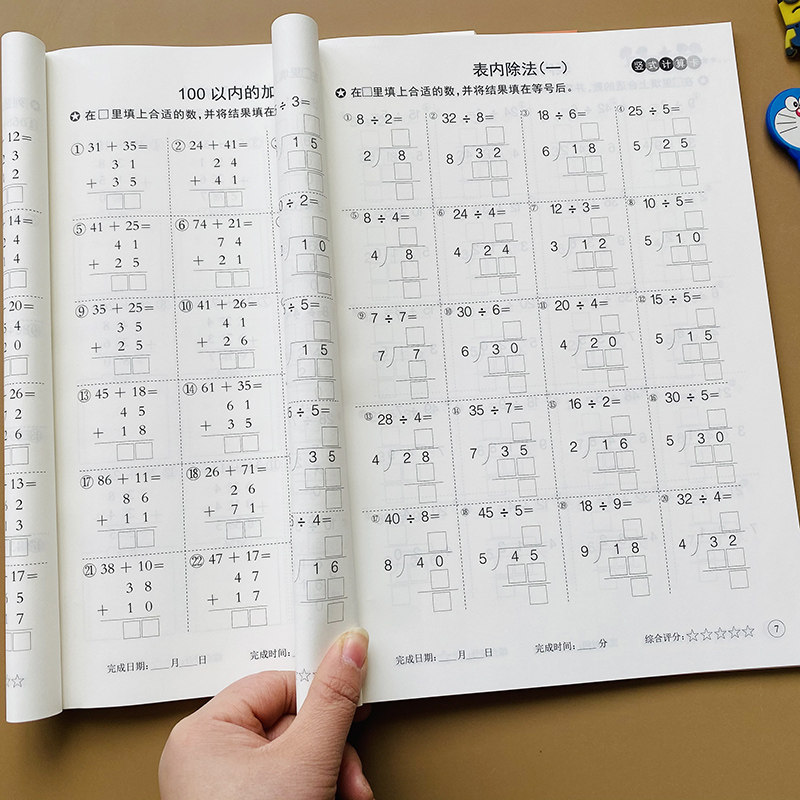 12=
2 3
2
14=
2 4
4
20=
3 4
2 0
26=
7 2
2 6
13=
6 2
1 3
17=
5
7
100 以内的加
✪ 在□里填上合适的数,并将结果填在
① 31 + 35= ② 24 + 41=
3 1 2 4
+ 3 5 + 4 1
⑤ 41 + 25= ⑥ 74 + 21=
4 1 7 4
+ 2 5 + 2 1
⑨ 35 + 25= ⑩ 41 + 26=
3 5 4 1
+ 2 5 + 2 6
⑬ 45 + 18= ⑭ 61 + 35=
4 5 6 1
+ 1 8 + 3 5
⑰ 86 + 11= ⑱ 26 + 71=
8 6 2 6
+ 1 1 + 7 1
㉑ 38 + 10= ㉒ 47 + 17=
3 8 4 7
+ 1 0 + 1 7
完成日期:____月____日 完成时间:
÷ 3=
1 5
÷ 2=
1 0
÷ 5=
1 5
÷ 5=
3 5
÷ 4=
1 6
表内除法(一)
竖式计算卡
✪ 在□里填上合适的数,并将结果填在等号后。
① 8 ÷ 2= ② 32 ÷ 8= ③ 18 ÷ 6= ④ 25 ÷ 5=
2 8 8 3 2 6 1 8 5 2 5
⑤ 8 ÷ 4= ⑥ 24 ÷ 4= ⑦ 12 ÷ 3= ⑧ 10 ÷ 5=
4 8 4 2 4 3 1 2 5 1 0
⑨ 7 ÷ 7= ⑩ 30 ÷ 6= ⑪ 20 ÷ 4= ⑫ 15 ÷ 5=
7 7 6 3 0 4 2 0 5 1 5
⑬ 28 ÷ 4= ⑭ 35 ÷ 7= ⑮ 16 ÷ 2= ⑯ 30 ÷ 5=
4 2 8 7 3 5 2 1 6 5 3 0
⑰ 40 ÷ 8= ⑱ 45 ÷ 5= ⑲ 18 ÷ 9= ⑳ 32 ÷ 4=
8 4 0 5 4 5 9 1 8 4 3 2
完成日期:____月____日 完成时间:____分 综合评分:☆☆☆☆☆
7